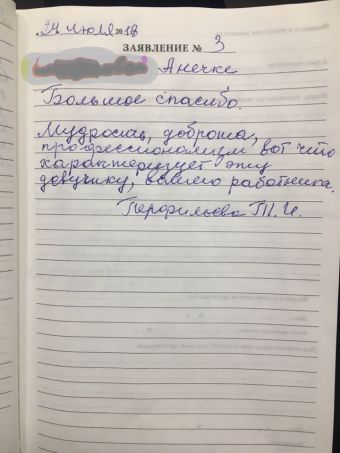 24 июля 2018
ЗАЯВЛЕНИЕ № 3
Анечке
Большое спасибо.
Мудрость, доброта,
профессионализм вот что
характеризует эту
девушку, вашего работника.
Перфильева Т.И.